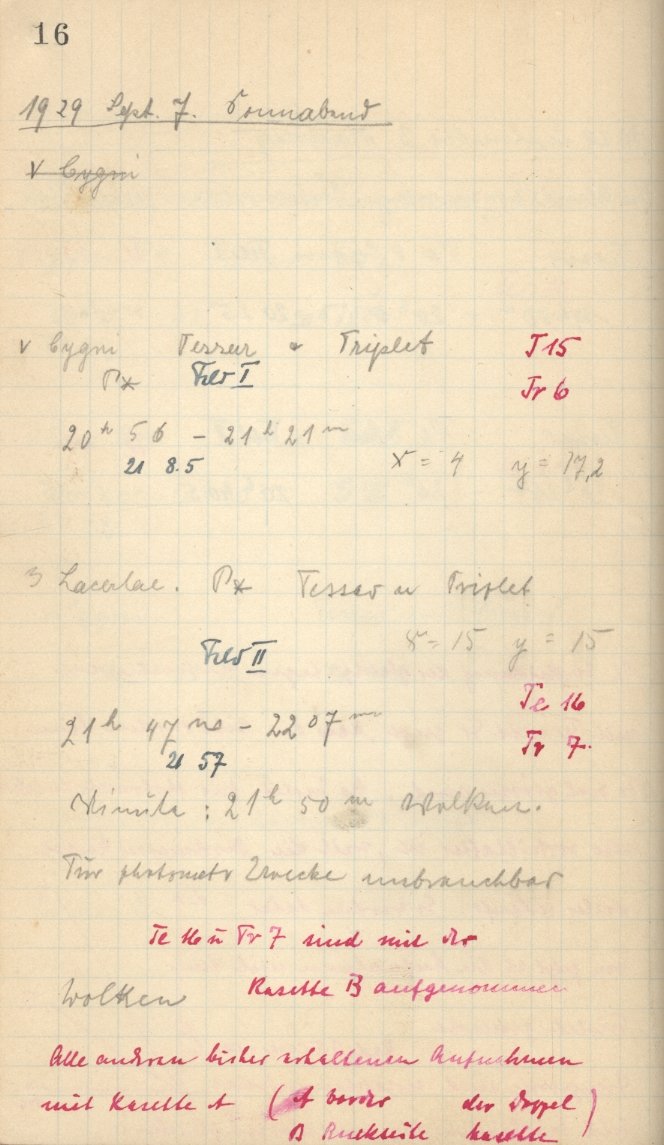 16
1929 Sept. 7. Sonnabend
v Cygni
v Cygni Tessar u Triplet T 15
P* Feld I Tr 6
20h 56 - 21h 21m
21 8.5 x = 4 y = 17,2
3 Lacertae. P* Tessar u Triplet
Feld II x = 15 y = 15
Te 16
21h 47m - 22 07m Tr 7.
21 57
: 21h 50m Wolken.
Für photometr Zwecke unbrauchbar
Te 16 u Tr 7 sind mit der
Kasette B aufgenommen
Wolken
Alle anderen bisher erhaltenen Aufnahmen
mit Kasette A (A Vorder der Doppel)
B Rückseite Kasette